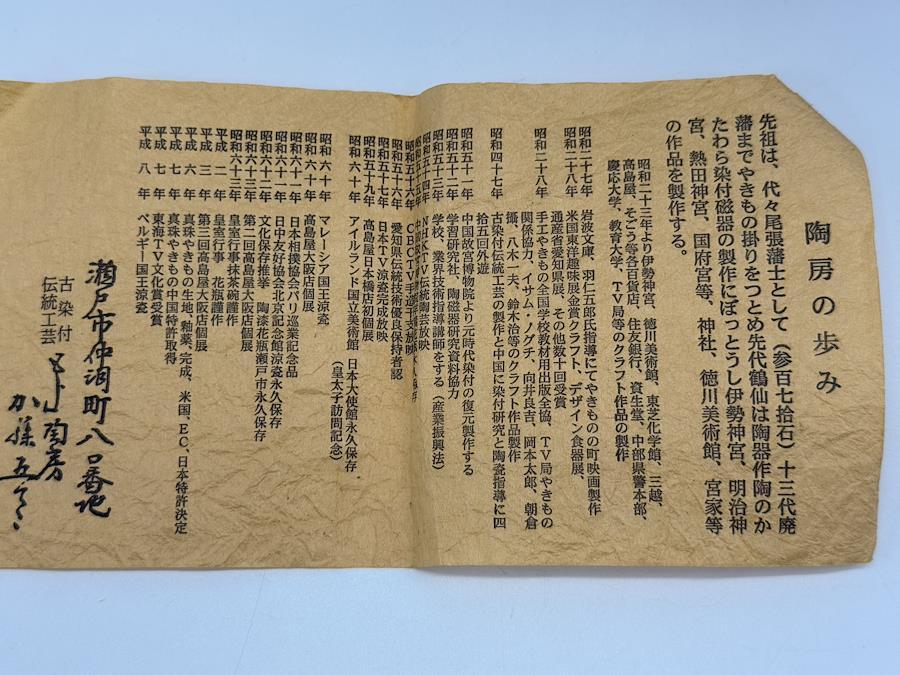 陶房の歩み
先祖は、代々尾張藩士として（参百七拾石）十三代廃
藩までやきもの掛りをつとめ先代鶴仙は陶器作陶のか
たわら染付磁器の製作にぼっとうし伊勢神宮、明治神
宮、熱田神宮、国府宮等、神社、徳川美術館、宮家等
の作品を製作する。
昭和二十三年より伊勢神宮、徳川美術館、東芝化学館、三越、
高島屋、そごう等各百貨店、住友銀行、資生堂、中部県警本部、
慶応大学、教育大学、TV局等のクラフト作品の製作
昭和二十七年 岩波文庫、羽仁五郎氏指導にてやきものの町映画製作
昭和二十八年 米国東洋趣味展金賞クラフト、デザイン食器展、
通産省愛知県展、その他数十回受賞
昭和二十八年 手工やきものの全国学校教材用出版全協、TV局やきもの
関係協力、イサム・ノグチ、向井良吉、岡本太郎、朝倉
摂、八木一夫、鈴木治等のクラフト作品製作
昭和四十七年 古染付伝統工芸の製作と中国に染付研究と陶瓷指導に四
拾五回外遊
昭和五十一年 中国故宮博物院より元時代染付の復元製作する
昭和五十二年 学習研究社、陶磁器研究資料協力
昭和五十三年 学校、業界技術指導講師をする（産業振興法）
昭和五十四年 NHKTV伝統陶芸放映
昭和五十六年 愛知県伝統技術優良保持者認
昭和五十七年 日本TV涼瓷完成放映
昭和五十九年 高島屋日本橋店初個展
昭和六十年 アイルランド国立美術館 日本大使館永久保存
（皇太子訪問記念）
昭和六十年 マレーシア国王涼瓷
昭和六十年 高島屋大阪店個展
昭和六十一年 日本相撲協会パリ巡業記念品
昭和六十一年 日中友好協会北京記念館涼瓷永久保存
昭和六十二年 文化保存推挙 陶漆花瓶瀬戸市永久保存
昭和六十三年 第二回高島屋大阪店個展
昭和六十三年 皇室行事抹茶碗謹作
平成二年 皇室行事 花瓶謹作
平成三年 第三回高島屋大阪店個展
平成六年 真珠やきもの生地、釉薬、完成、米国、EC、日本特許決定
平成七年 真珠やきもの中国特許取得
平成七年 東海TV文化賞受賞
平成八年 ベルギー国王涼瓷
瀬戸市仲洞町八口番地
古染付
伝統工芸
陶房